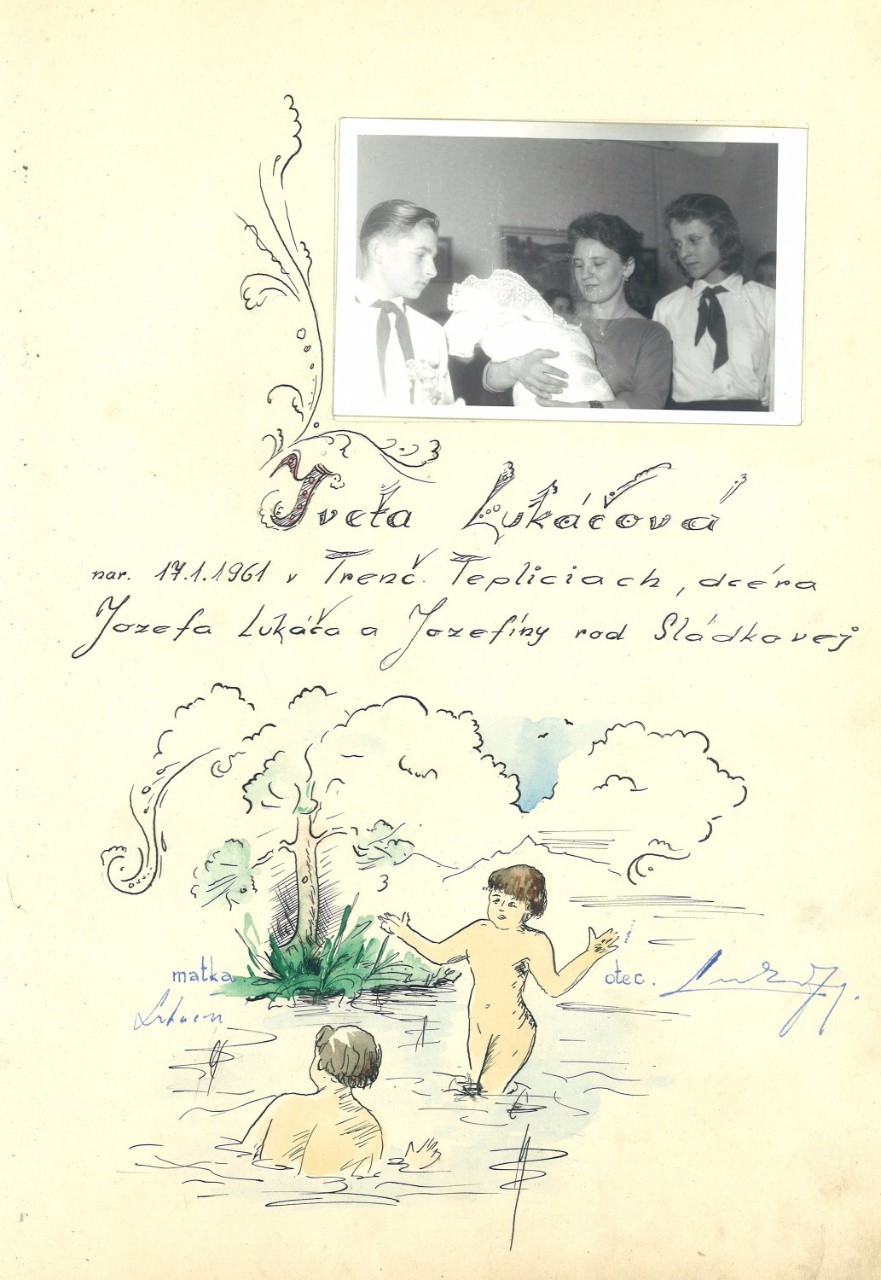 Iveta Lukáčová
nar. 17.1.1961 v Trenč. Tepliciach, dcéra
Jozefa Lukáča a Jozefíny rod Sládkovej
matka
otec.